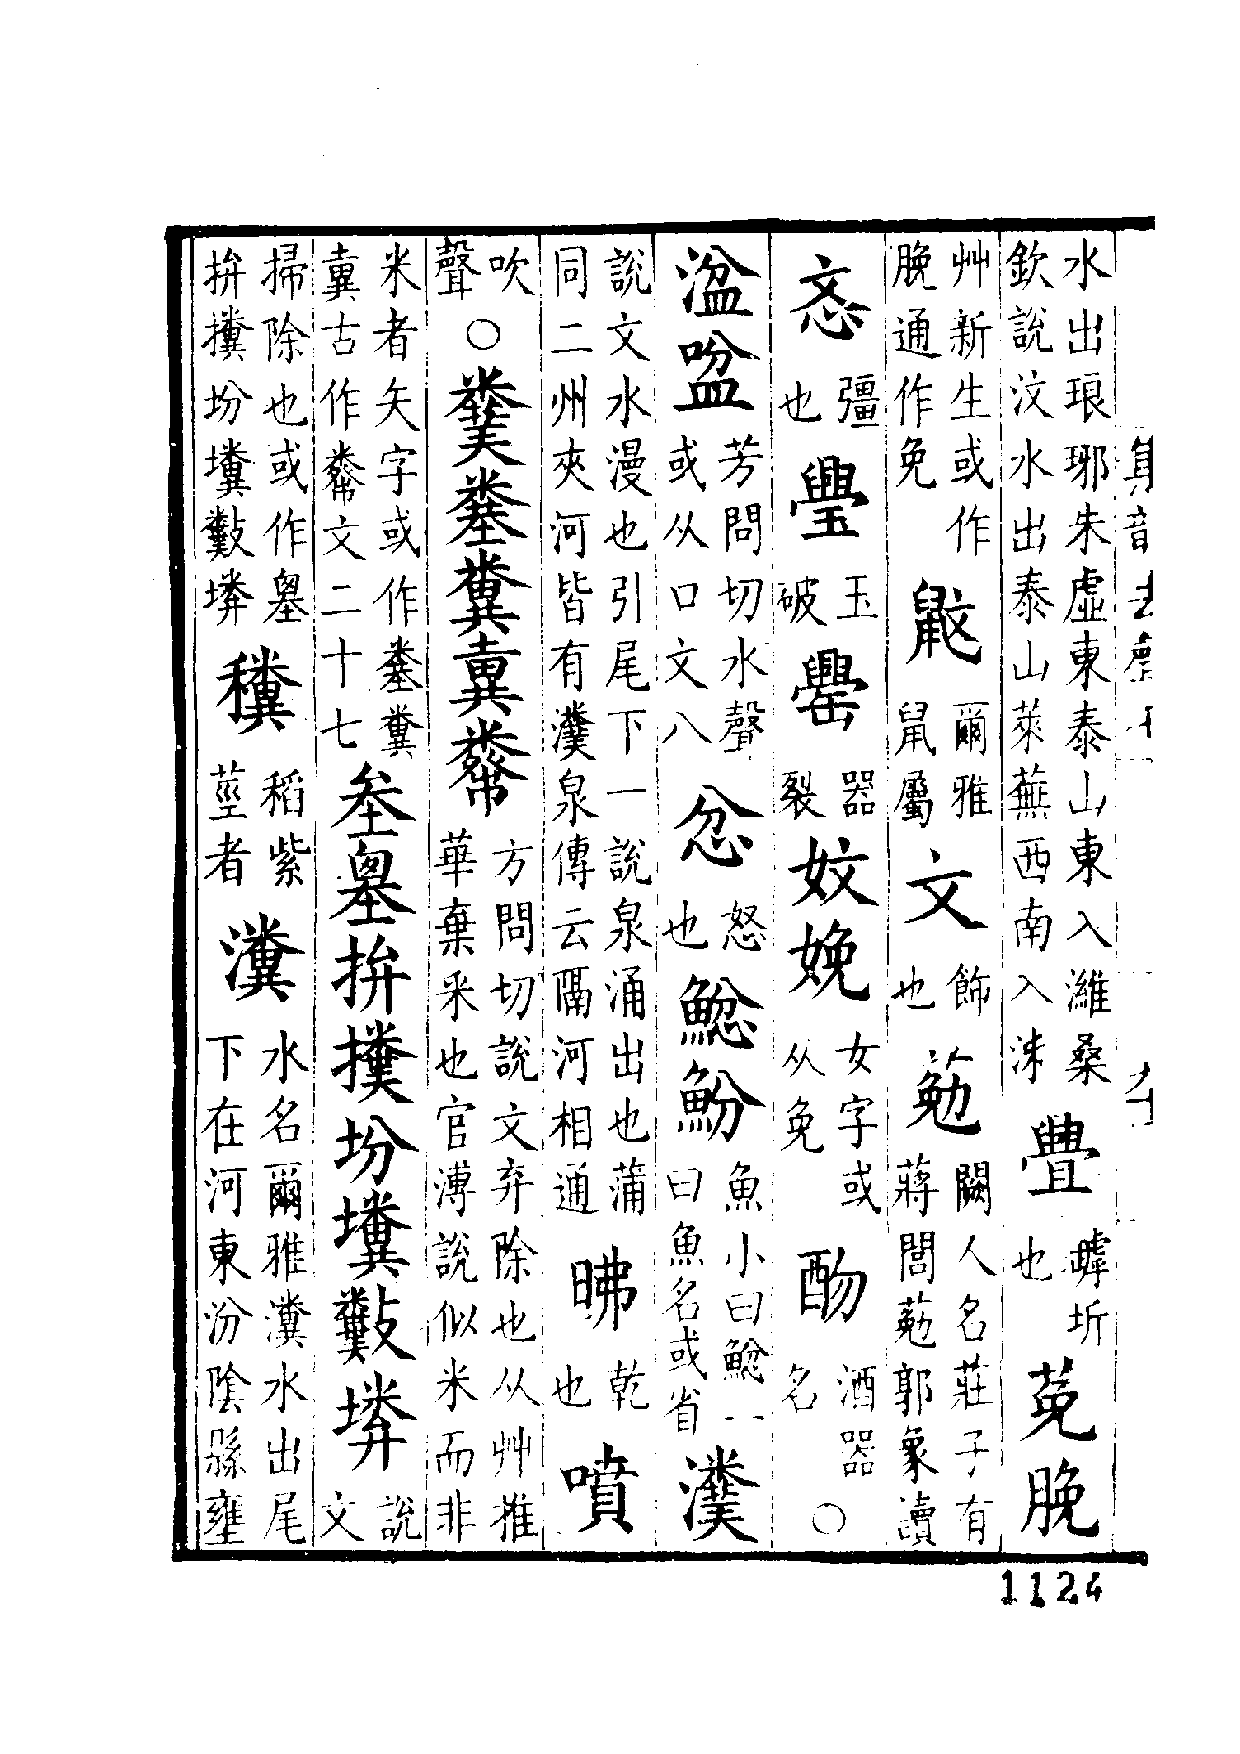 水出琅邪朱虛東泰山東入濰桑欽說汶水出泰山萊蕪西南入泲亹罅坼也莬脕
艸新生或作脕通作免爾雅鼠屬文飾也葂闕人名莊子有蔣閭葂郭象讀
忞彊也璺玉破器裂妏娩女字或从免酒器名○
湓㖹芳問切水聲或从口文八忿怒也魵魚小曰一曰魚名或省瀵
說文水漫也引尾下一說泉涌出也蒲同二州夾河皆有瀵泉傳云隔河相通昲乾也噴
吹聲○糞方問切說文弃除也从艸推華棄釆也官溥說似米而非
米者矢字或作糞古作文二十七坌拚坋說文
掃除也或作拚坋稻紫莖者瀵水名爾雅瀵水出尾下在河東汾陰縣壅
1124